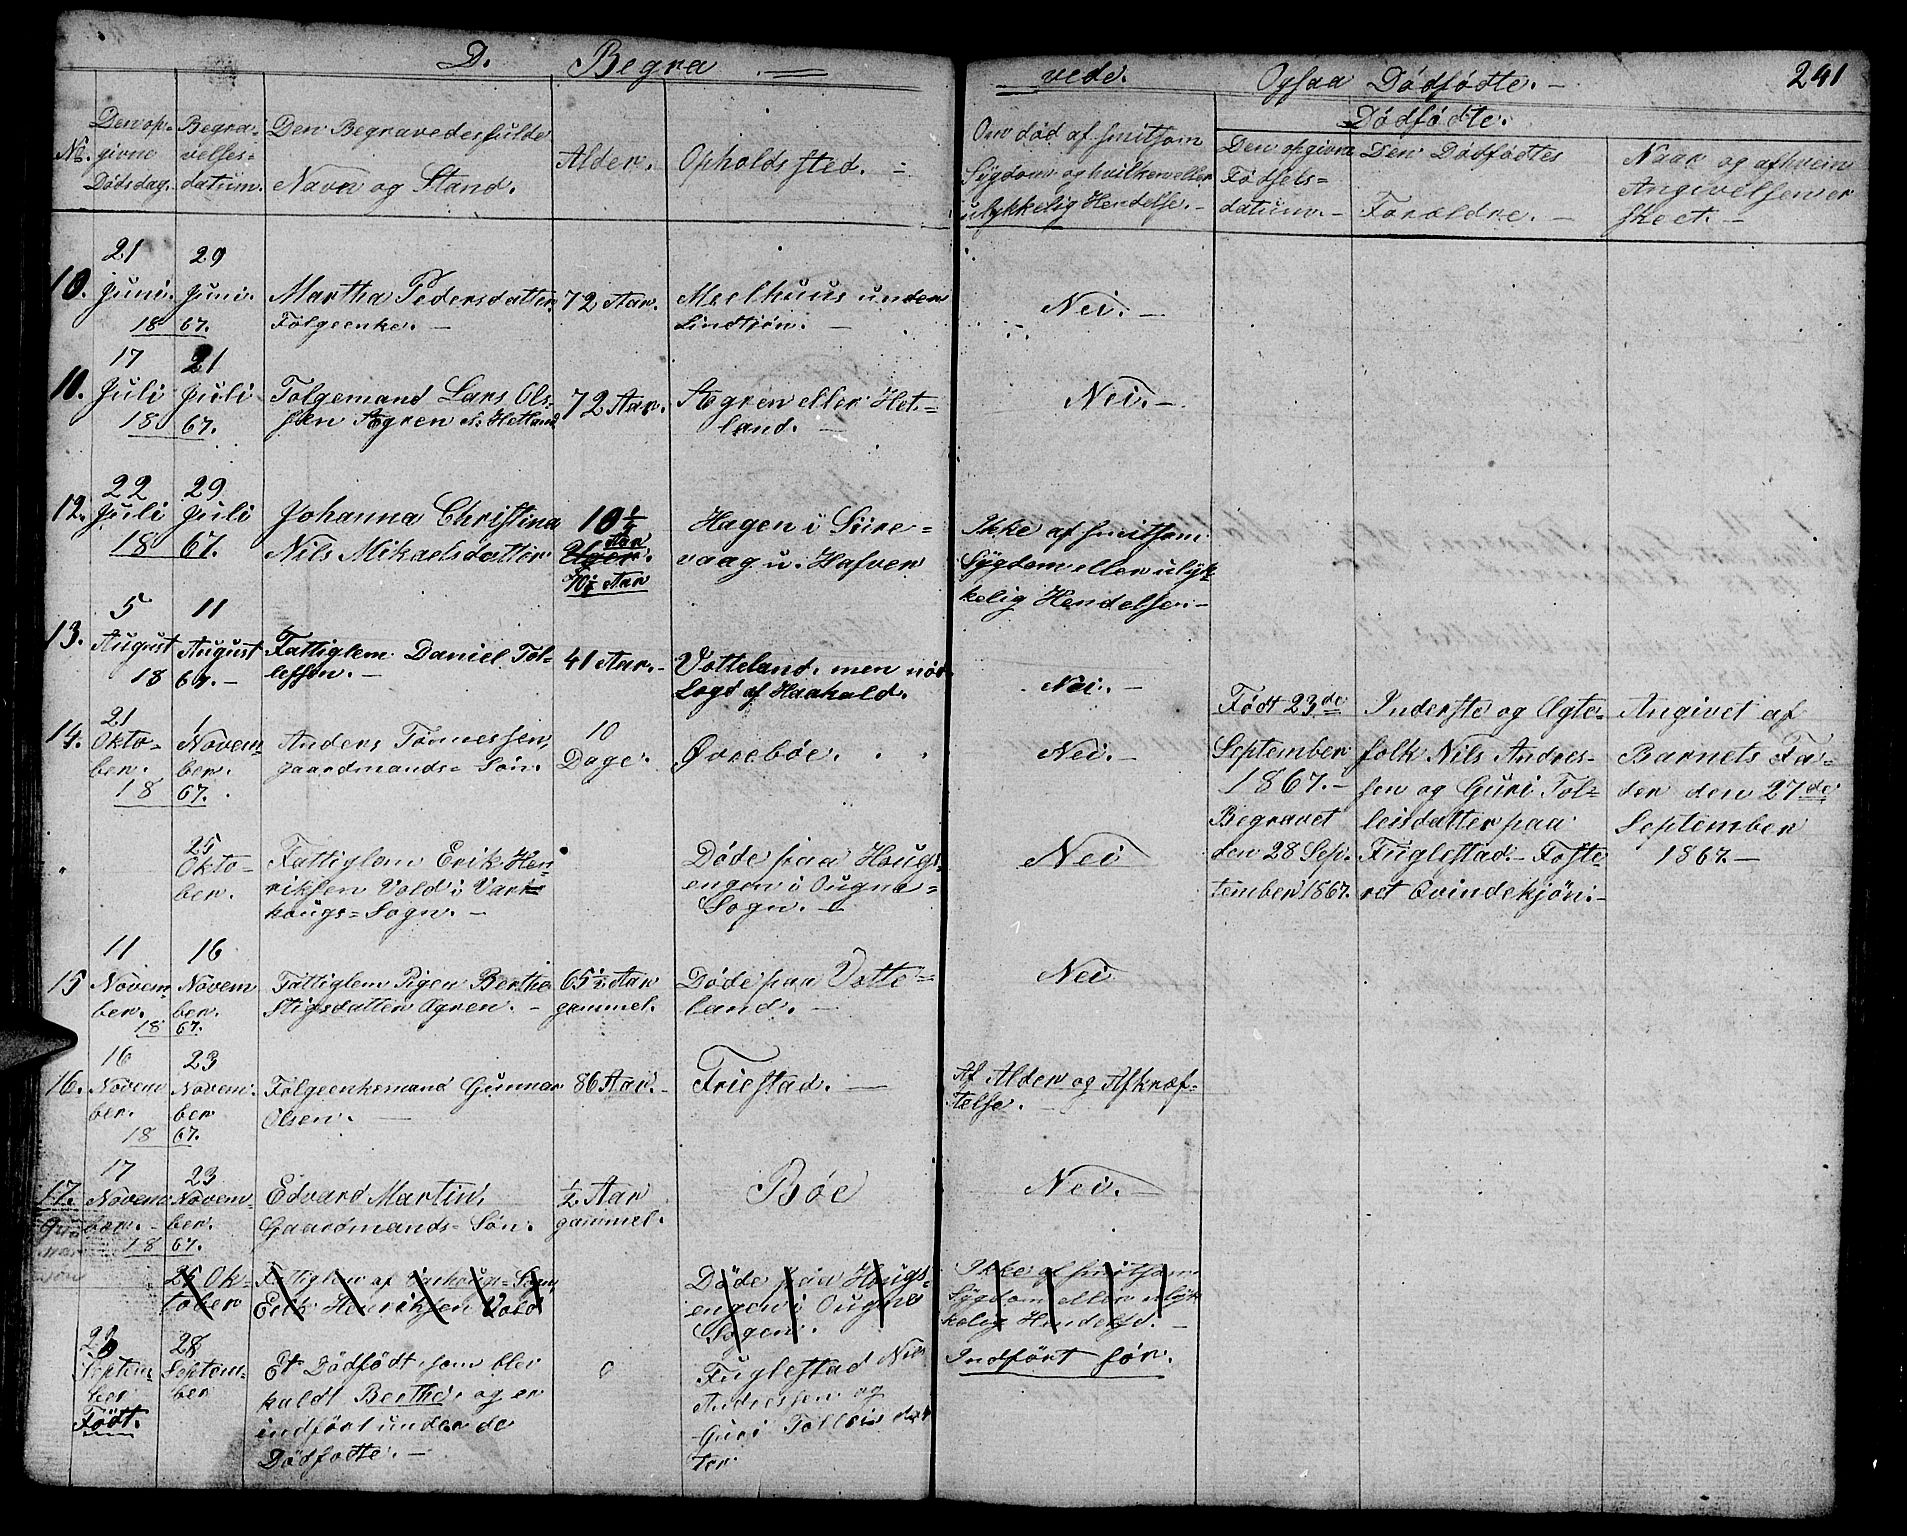 D. Begra = vede. Ogsaa Dödfödte. - 241
No. Den op-
givne
Dödsdag.
Begra-
velses-
datum.
Den Begravedes fulde
Navn og Stand.
Alder.
Opholdssted. -
Om död af smitsom
Sygdom og hvilken eller
ulykkelig Hendelse. -
Dödfödte.
Den opgivne
Födsels=
datum. -
Den Dödfödtes
Forældre. -
Naar og af hvem
Angivelsen er
skeet. -
10. 21 Juni. 29 Juni.
1867.
Martha Pedersdatter
Fölgeenke. -
72 Aar.
Meelhuus under
Lindtjön. -
Nei. -
10. 17 Juli 21 Juli
1867.
Folgemand Lars Ols-
sen Ægren el: Hetland
72 Aar.
Ægren eller Het=
land. -
Nei. -
12. 22 Juli 29 Juli
1867.
Johanna Christina
Nils Mikaelsdatter
10 1/4
Aar
10 1/4 Aar
Hagen i Siire=
vaag u. Hafver
Ikke af smitsom
Sÿgdom eller ulyk-
kelig Hendelse. -
13. 5 August 11 August
1867. -
Fattiglem Daniel Tol-
lefsen. -
41 Aar. -
Votteland. men nöd
Logd af Haahald.
Nei. -
14. 21 Okto-
ber. 1 Novem-
ber.
1867.
Anders Tönnessen,
gaardmands= Sön.
10
Dage.
Øvrebøe.
Nei. -
Födt 23de
September
1867. -
Begravet
den 28 Sep-
tember 1867.
Inderste og Ægte-
folk Nils Andres-
sen og Guri Tol=
leisdatter paa
Fuglestad. - Foste-
ret Qvindekjön: -
Angivet af
Barnets Fa-
der den 27de
September
1867. -
25
Okto-
ber.
Fattiglem Erik Hen-
riksen Vold i Var-
hougs= Sogn. -
Døde paa Hougs-
engen i Ougne=
Sogn. -
Nei
15 11 Novem-
ber. 16 Novem
ber.
1867.
Fattiglem Pigen Berthe
Stigsdatter Ogren. -
65 1/2 Aar
gammel.
Døde paa Votte=
land. -
Nei
16. 16 Novem
ber. 23 Novem.
ber
1867.
Fölgeenkemand Gunnar
Olsen. -
86 Aar. -
Friestad. -
Af Alder og Afkræf-
telse. -
17. 17 Novem
ber. - 23 Novem-
ber.
1867.
Edvard Martin,
Gaardmands= Sön.
1/2 Aar
gammel.
Bøe
Nei. -
25 Ok-
tober
Fattiglem af Varhougs= Sogn,
Erik Henriksen Vold
Døde paa Hougs-
engen i Ougne
Sogen.
Ikke af smitsom
Sÿgdom eller ulyk
kelig Hendelse. -
Indfört för.
Septem-
ber
Födt.
28
Septem-
ber
Et Dödfödt som blev
kaldt Berthe, og er
indfört under de
Dödfødte. -
0
Fuglestad Nils
Andressen og
Guri Tolleisdat
ter.